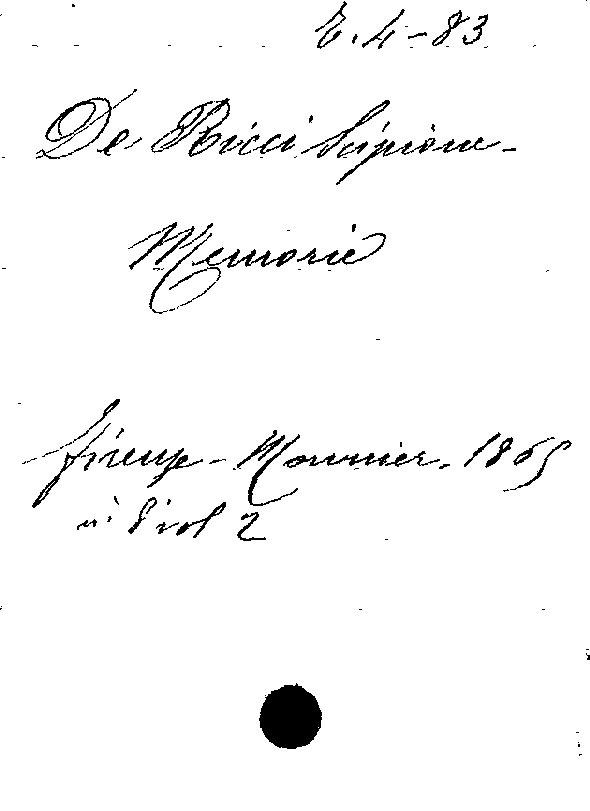 E. 4-83
De Ricci Scipione-
Memorie
Firenze - Monnier. 1865
in 8 vol 2